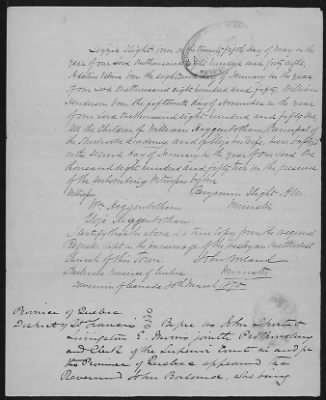 Lizzie Slight born on the twenty fifth day of May in the
year of our Lord One thousand eight hundred and forty eight.
Adeline Edna born the eighteenth day of January in the year
of our Lord One thousand eight hundred and fifty. William
Anderson born the fifteenth day of November in the year
of our Lord One thousand eight hundred and fifty one
All the Children of William Haggenbotham, Principal of
the Sherbrooke Academy and of Eliza his wife were baptized
on the second day of January in the year of our Lord One
thousand eight hundred and fifty two in the presence
of the subscribing Witnesses before
Witness Benjamin Slight A.M.
Wm Haggenbotham Minister
Eliza Haggenbotham
I certify that the above is a true Copy from the
Register kept in the parsonage of the Wesleyan Methodist
Church of this Town. John Borland
Sherbrooke Province of Quebec Minister
Dominion of Canada 30th March
Province of Quebec
District of St Francis Before us John Short &
Livingston E. Morris jointly Prothonotary
and Clerk of the Superior Court in and for
the Province of Quebec appeared the
Reverend John Borland, who being